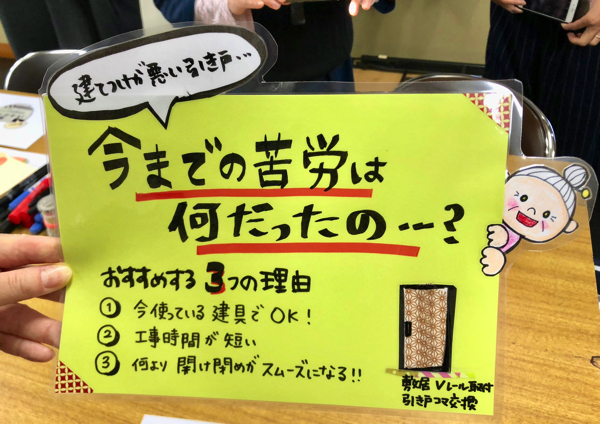 建てつけが悪い引き戸…
今までの苦労は
何だったの…?
おすすめする3つの理由
① 今使っている建具でOK!
② 工事時間が短い
③ 何より開け閉めがスムーズになる!!
敷居Vレール取付
引き戸コマ交換